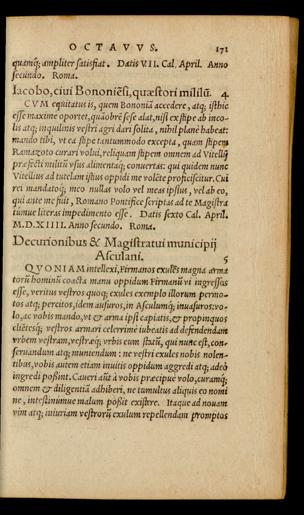 OCTAVVS. 171
quamq; ampliter satisfiat. Datis VII. Cal. April. Anno
secundo. Roma.
Iacobo, ciui Bononiēsi, quæstori militū. 4
CVM equitatus is, quem Bononiā accedere, atq; isthic
esse maxime oportet, quāobrē sese alat, nisi ex stipe ab inco-
lis atq; inquilinis vestri agri dari solita, nihil planè habeat:
mando tibi, vt ea stipe tantummodo excepta, quam stipem
Ramazoto curari volui, reliquam stipem omnem ad Vitellij
præfecti militū vsus alimentaq; conuertas: qui quidem nunc
Vitellius ad tutelam istius oppidi me volēte proficiscitur. Cui
rei mandatoq; meo nullas volo vel meas ipsius, vel ab eo,
qui ante me fuit, Romano Pontifice scriptas ad te Magistra
tumue literas impedimento esse. Datis sexto Cal. April.
M.D.XIIII. Anno secundo. Roma.
Decurionibus & Magistratui municipij
Asculani. 5
QVONIAM intellexi, Firmanos exules magna arma
torū hominū coacta manu oppidum Firmanū vi ingressos
esse, veritus vestros quoq; exules exemplo illorum permo-
tos atq; percitos, idem ausuros, in Asculumq; inuasuros: vo-
lo, ac vobis mando, vt & arma ipsi capiatis, & propinquos
cliētesq; vestros armari celerrimè iubeatis ad defendendam
vrbem vestram, vestræq; vrbis eum statū, qui nunc est, con-
seruandum atq; muniendum: ne vestri exules nobis nolen-
tibus, vobis autem etiam inuitis oppidum aggredi atq; adeò
ingredi poßint. Caueri aūt à vobis præcipuè volo, curamq;
omnem & diligentiā adhiberi, ne tumultus aliquis eo nomi
ne, intestinumue malum poßit existere. Itaque ad nouam
vim atq; iniuriam vestrorū exulum repellendam promptos